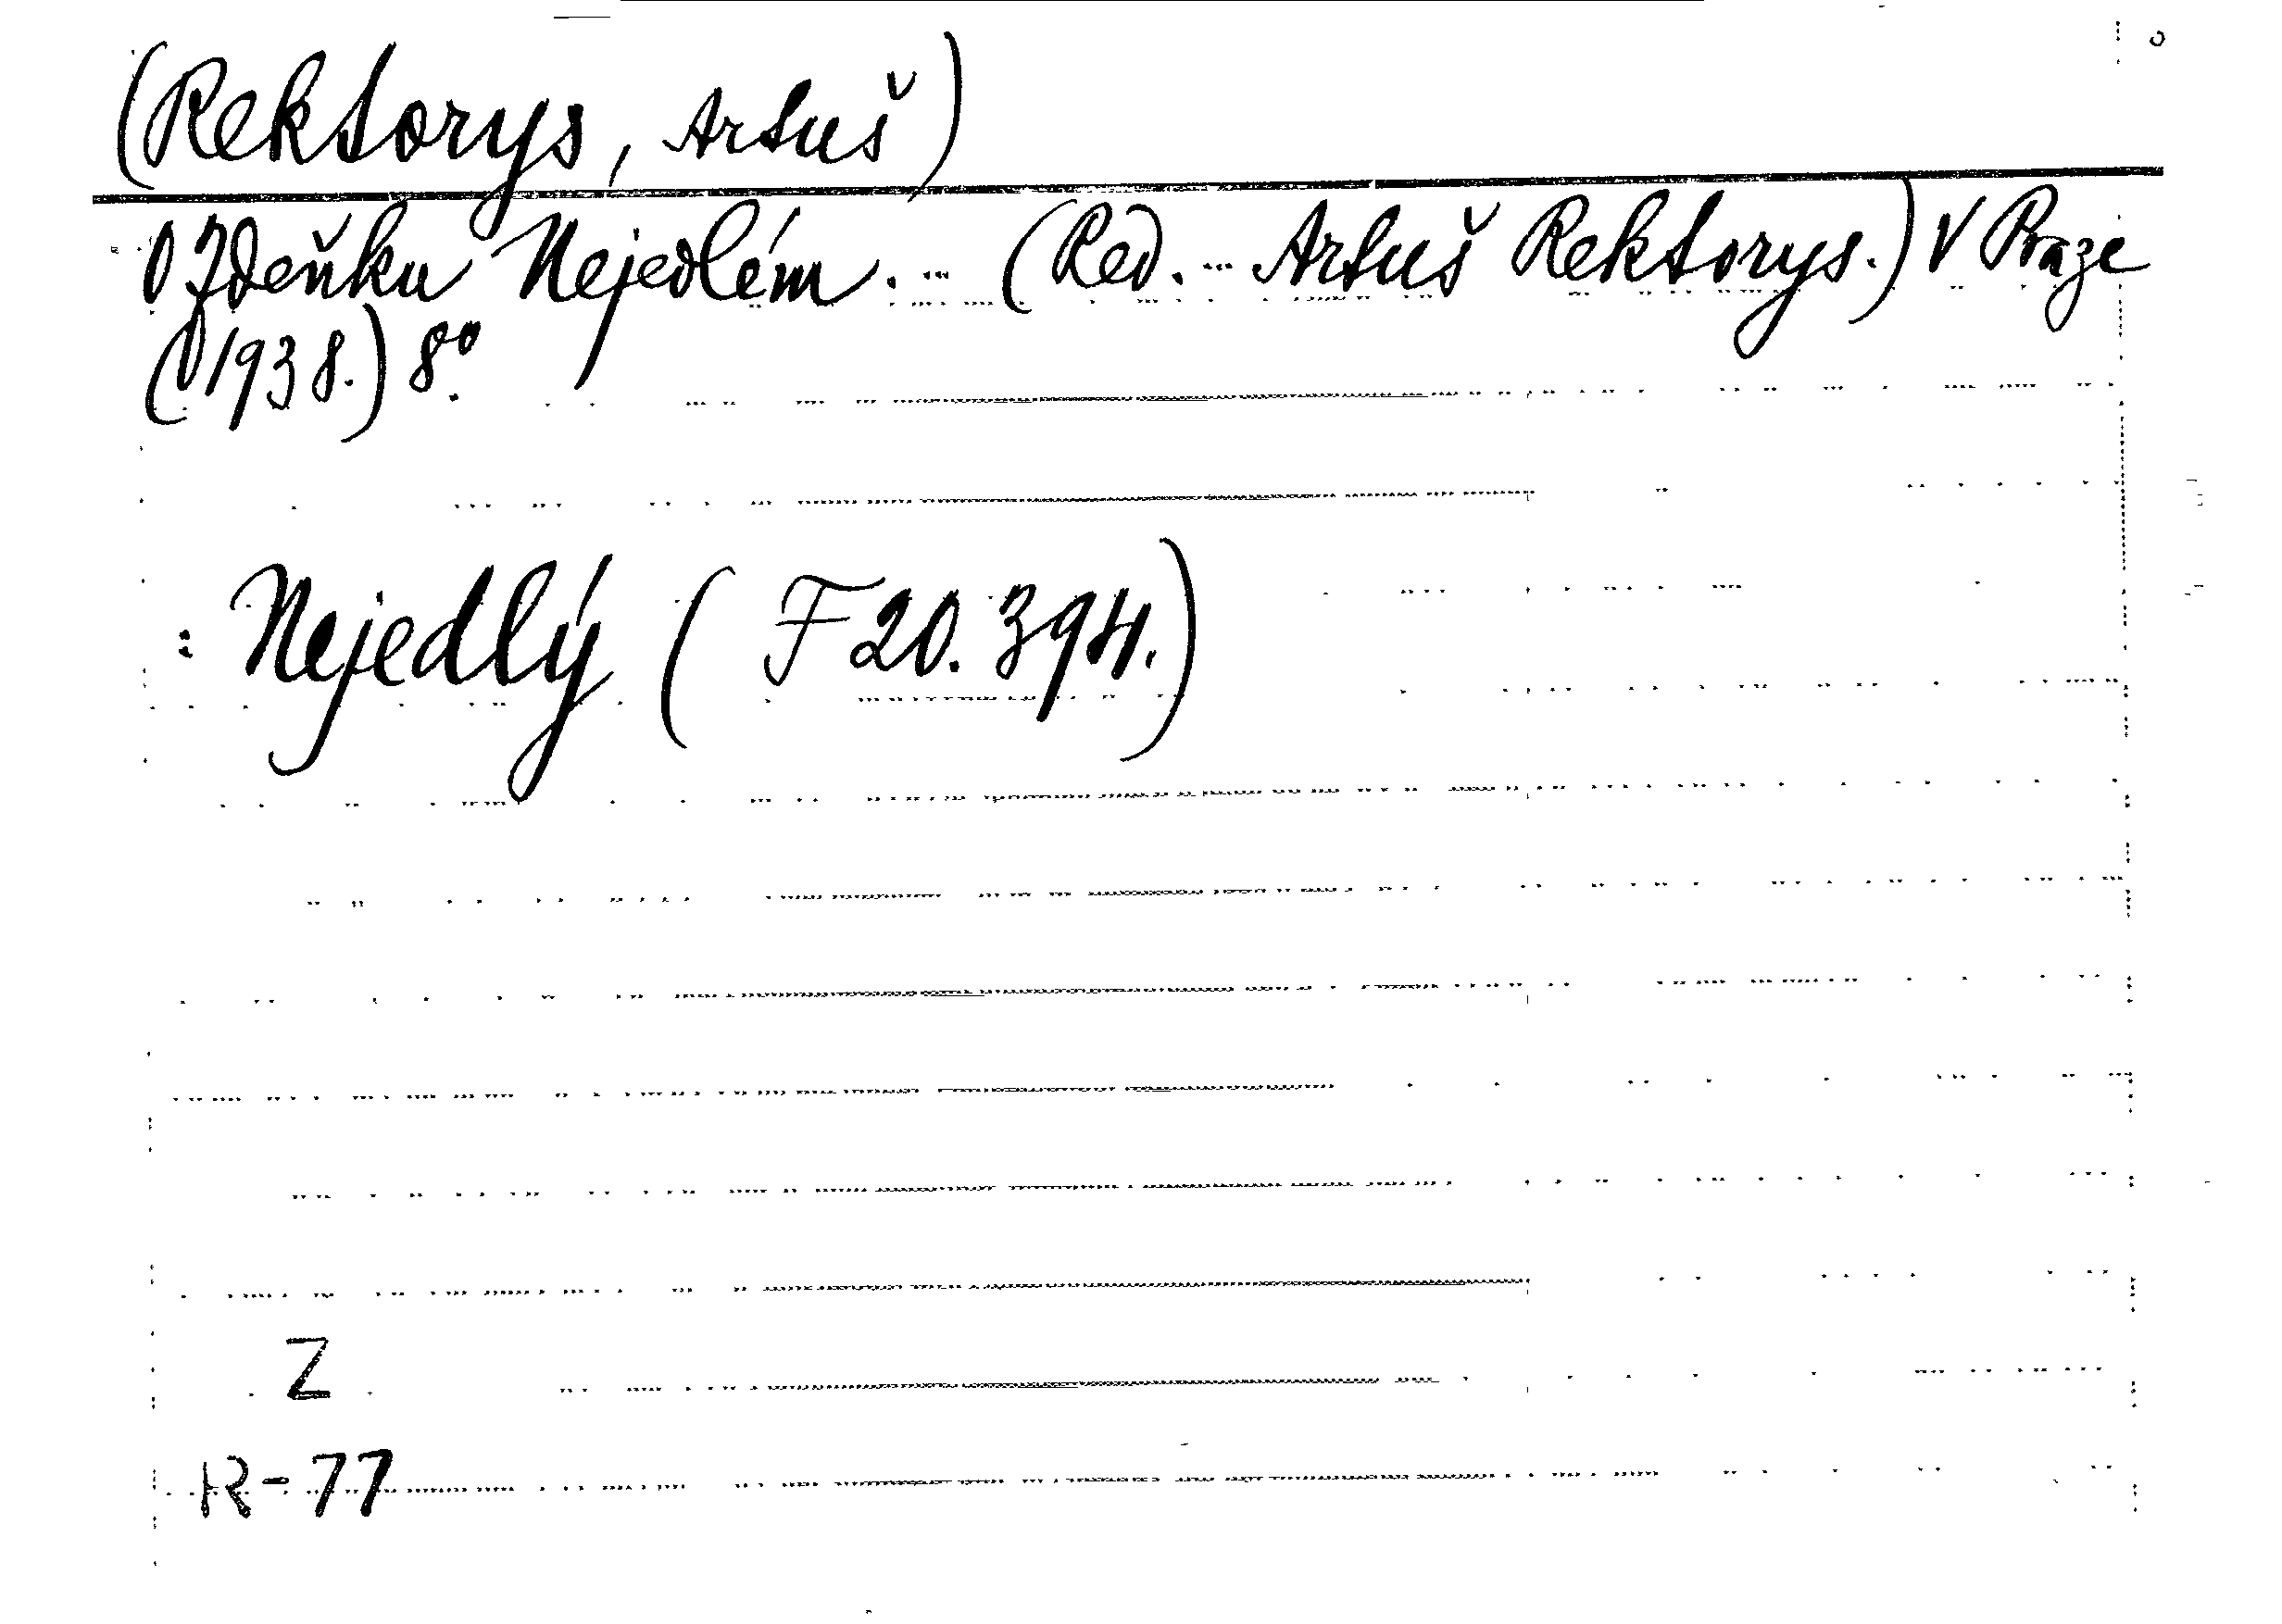 (Rektorys, Artuš)
O Zdeňku Nejedlém. - (Red. - Artuš Rektorys.) V Praze
(1938.) 8º.
: Nejedlý (F 20.394.)
Z
R-77